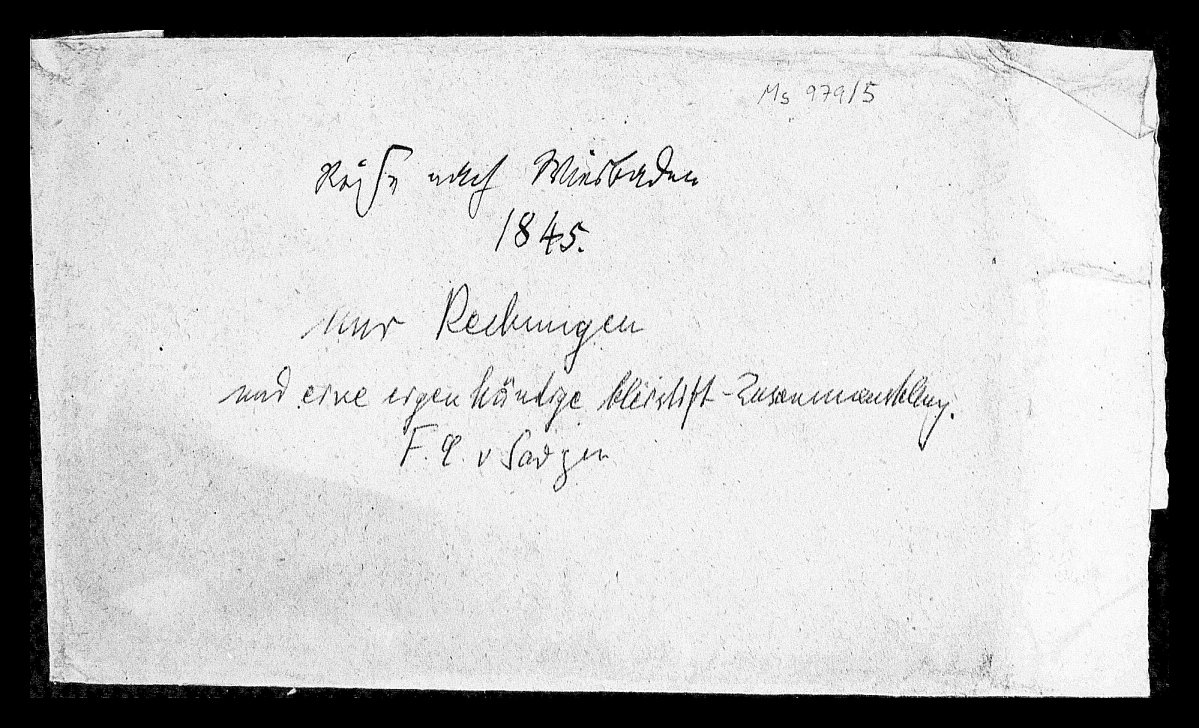 Ms 979/5
Reise nach Wiesbaden
1845.
nur Rechnungen
und eine eigenhändige bleistift-Zusammenstellung.
F. C. v